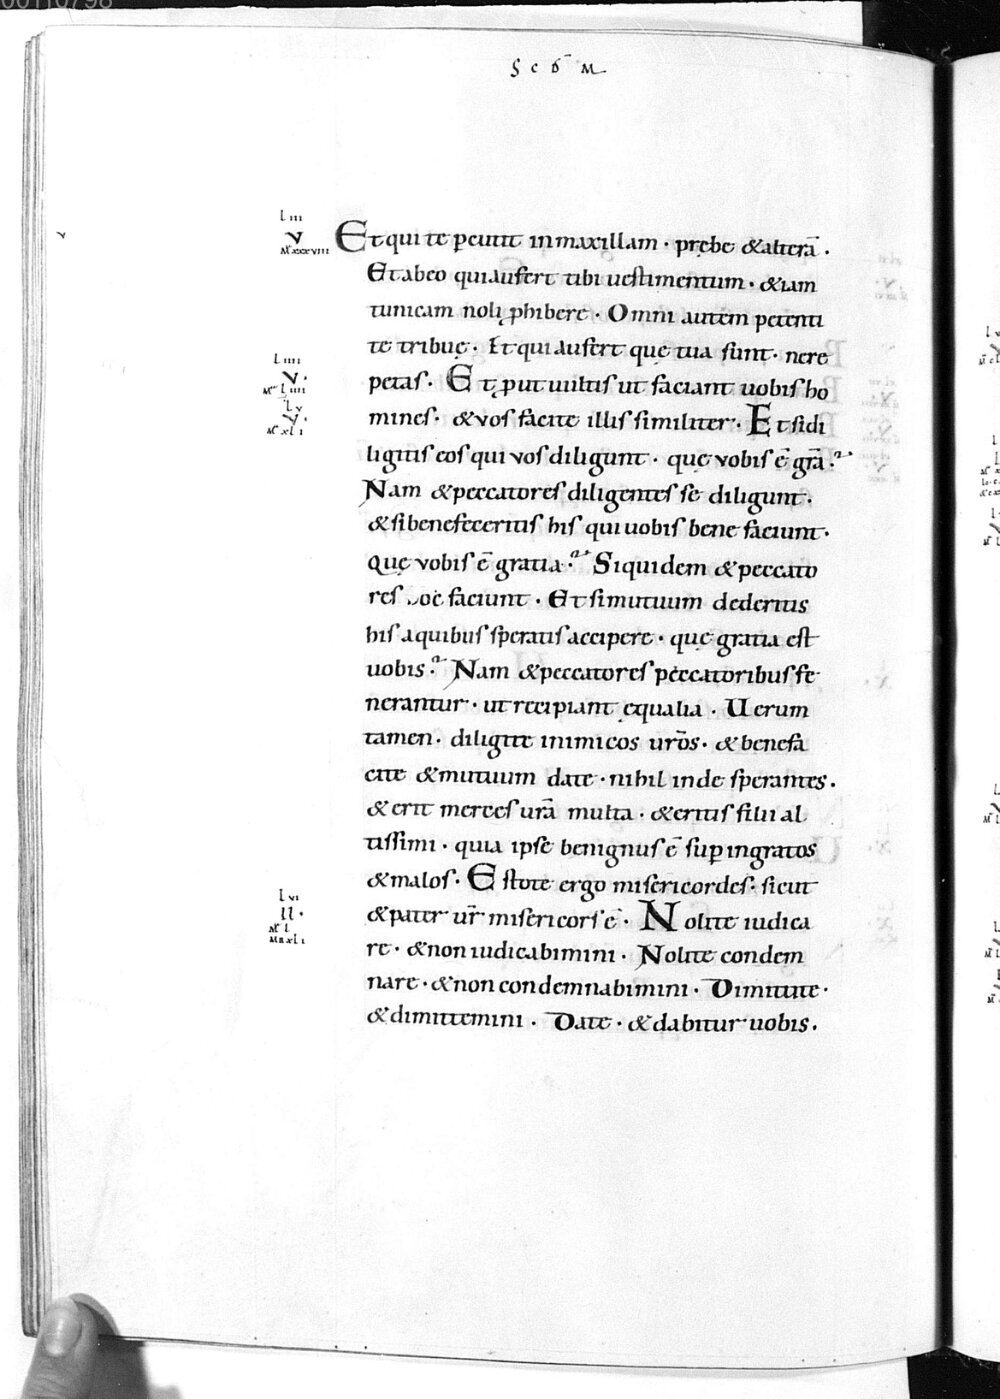 00110798
Scdˉ M
Liii
V
Mͬ xxxviii
Et qui te pcutit in maxillam · prębe & alterā ·
Et ab eo qui aufert tibi uestimentum · &iam
tunicam noli phibere · Omni autem petenti
te tribuę · Et qui aufert quę tua sunt · ne re
Liiii
V ·
petas · Et put uultis ut faciant uobis ho
Lv
V ·
Mͬ xLi
mines · & vos facite illis similiter · Et si di
ligitis eos qui vos diligunt · quę vobis ē grā ·
Nam & peccatores diligentes se diligunt ·
& si benefeceritis his qui uobis bene faciunt ·
Quę vobis ē gratia · Siquidem & peccato
res hoc faciunt · Et si mutuum dederitis
his a quibus speratis accipere · quę gratia est
uobis · Nam & peccatores peccatoribus fe
nerantur · ut recipiant ęqualia · Uerum
tamen · diligite inimicos urōs · & benefa
cite & mutuum date · nihil inde sperantes ·
& erit merces urā multa · & eritis filii al
tissimi · quia ipse benignus ē sup ingratos
& malos · Estote ergo misericordes · sicut
Lvi
II ·
Mͬ L
& pater ur̄ misericors ē · Nolite iudica
re · & non iudicabimini · Nolite condem
nare · & non condemnabimini · Dimitute ·
& dimittemini · Date · & dabitur uobis ·